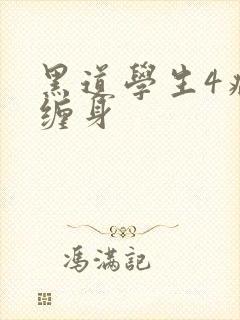 黑道學生4
缠身
馮滿記